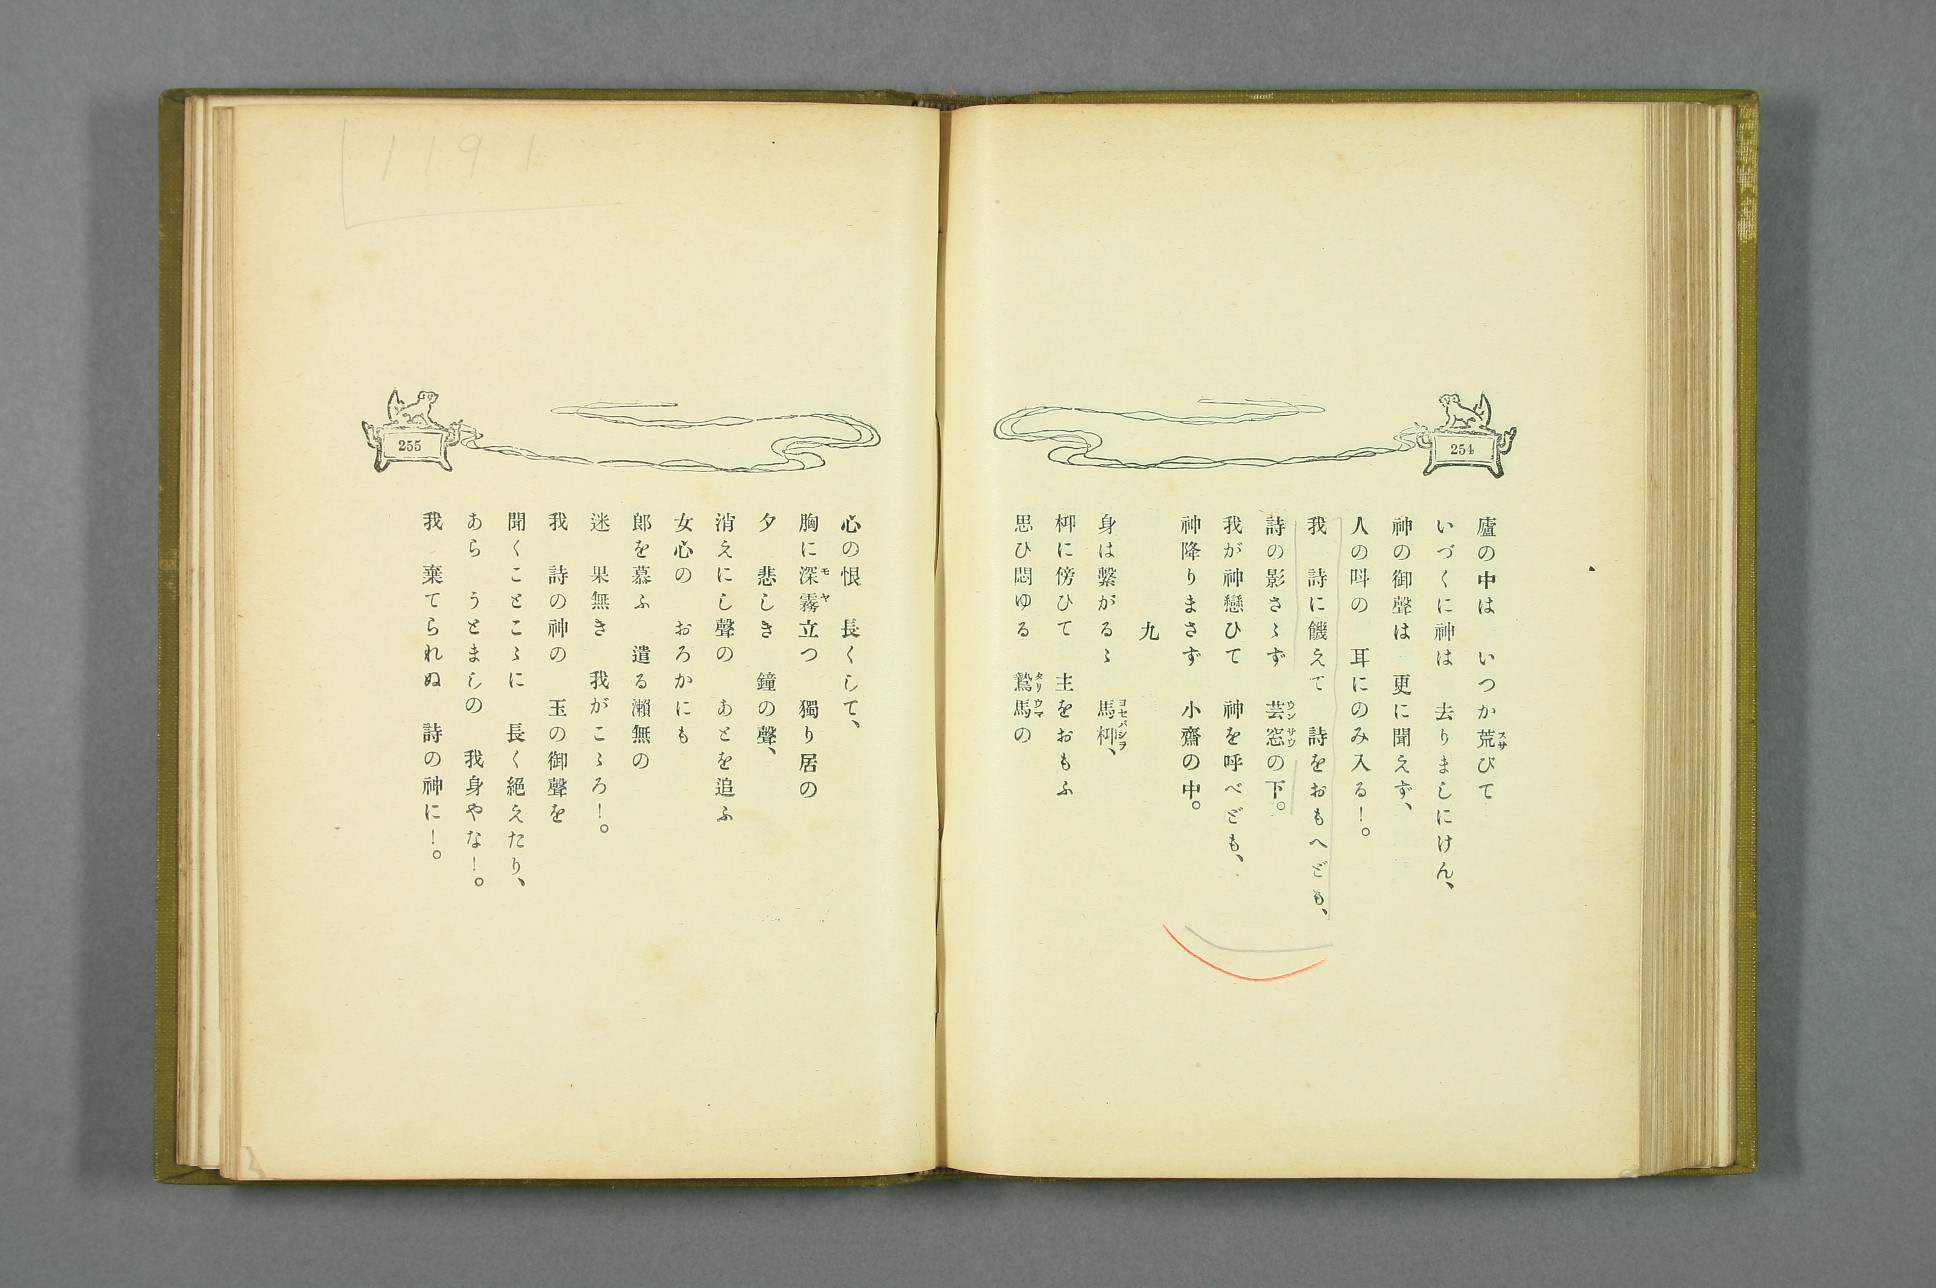 254
廬の中は　いつか荒びて
いづくに神は　去りましにけん、
神の御聲は　更に聞えず、
人の叫の　耳にのみ入る！。
我　詩に饑えて　詩をおもへども、
詩の影さゝず　芸窓の下。
我が神戀ひて　神を呼べども、
神降りまさず　小齋の中。
九
身は繋がるゝ　馬柳、
柳に傍ひて　主をおもふ
思ひ悶ゆる　鷙馬の
255
心の恨　長くして、
胸に深霧立つ　獨り居の
夕　悲しき　鐘の聲、
消えにし聲の　あとを追ふ
女心の　おろかにも
郎を慕ふ　遣る瀬無の
迷　果無き　我がこゝろ！。
我　詩の神の　玉の御聲を
聞くことこゝに　長く絶えたり、
あら　うとましの　我身やな！。
我　棄てられぬ　詩の神に！。
1191